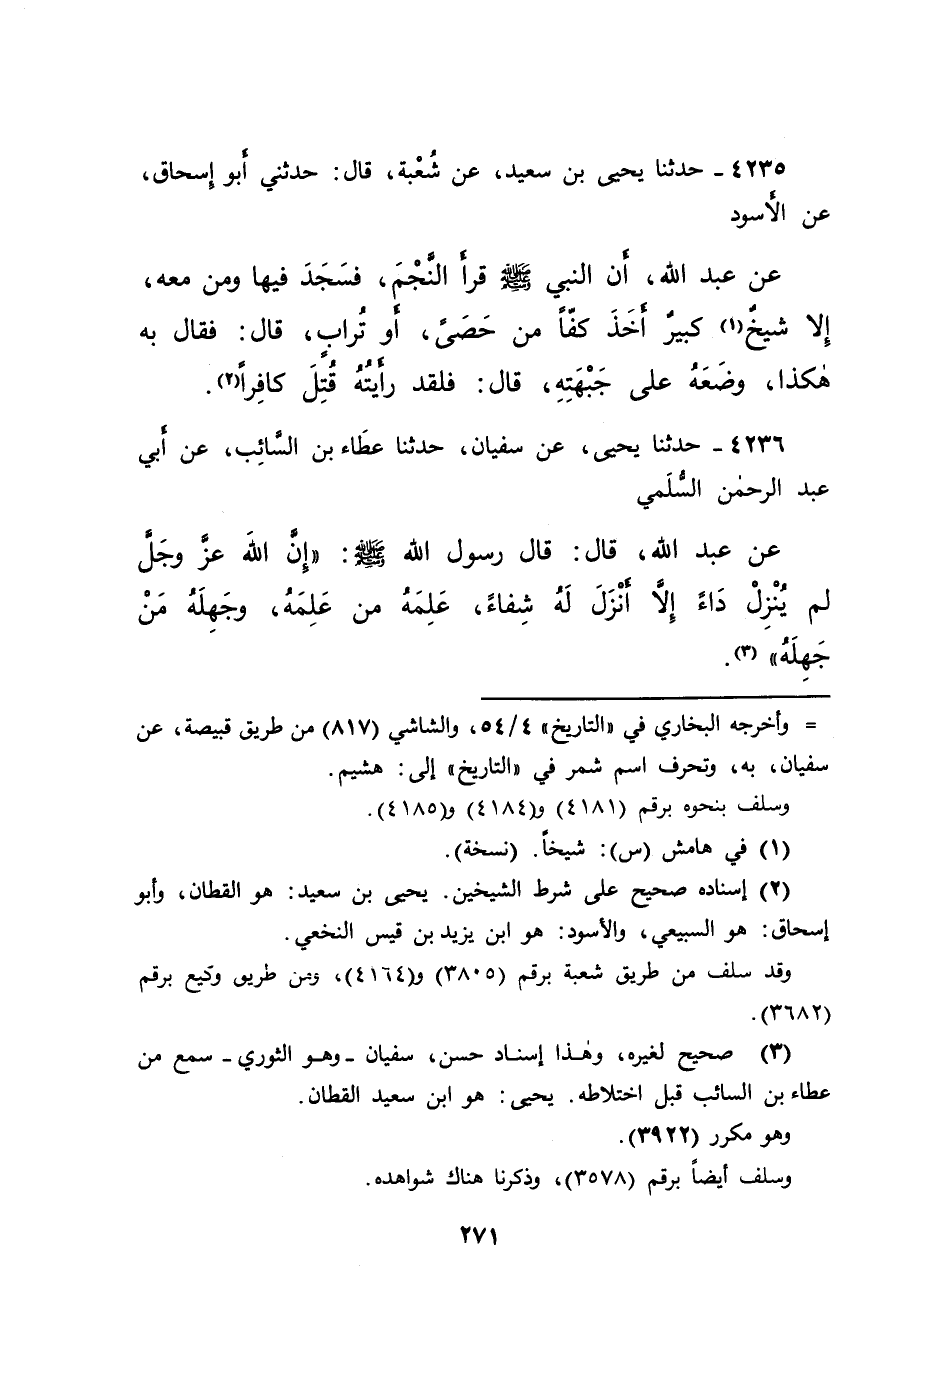 ٤٢٣٥ ـ حدثنا يحيى بن سعيد، عن شُعْبة، قال: حدثني أَبو إِسحاق،
عن الأَسود
عن عبد الله، أَن النبي ﷺ قرأَ النَّجْمَ، فسَجَدَ فيها ومن معه،
إِلا شيخٌ(١) كبيرٌ أَخَذَ كفّاً من حَصَىً، أَو تُرابٍ، قال: فقال به
هٰكذا، وضَعَهُ على جَبْهَتِهِ، قال: فلقد رأَيتُهُ قُتِلَ كافِراً(٢).
٤٢٣٦ ـ حدثنا يحيى، عن سفيان، حدثنا عطَاء بن السَّائِب، عن أَبي
عبد الرحمٰن السُّلَمي
عن عبد الله، قال: قال رسول الله ﷺ: «إِنَّ اللهَ عزَّ وجَلَّ
لم يُنْزِلْ دَاءً إِلَّا أَنْزَلَ لَهُ شِفاءً، عَلِمَهُ من عَلِمَهُ، وجَهِلَهُ مَنْ
جَهِلَهُ» (٣).
= وأخرجه البخاري في «التاريخ» ٥٤/٤، والشاشي (٨١٧) من طريق قبيصة، عن
سفيان، به، وتحرف اسم شمر في «التاريخ» إلى: هشيم.
وسلف بنحوه برقم (٤١٨١) و(٤١٨٤) و(٤١٨٥).
(١) في هامش (س): شيخاً. (نسخة).
(٢) إسناده صحيح على شرط الشيخين. يحيى بن سعيد: هو القطان، وأبو
إسحاق: هو السبيعي، والأسود: هو ابن يزيد بن قيس النخعي.
وقد سلف من طريق شعبة برقم (٣٨٠٥) و(٤١٦٤)، ومن طريق وكيع برقم
(٣٦٨٢).
(٣) صحيح لغيره، وهٰذا إسناد حسن، سفيان ـ وهو الثوري ـ سمع من
عطاء بن السائب قبل اختلاطه. يحيى: هو ابن سعيد القطان.
وهو مكرر (٣٩٢٢).
وسلف أيضاً برقم (٣٥٧٨)، وذكرنا هناك شواهده.
٢٧١